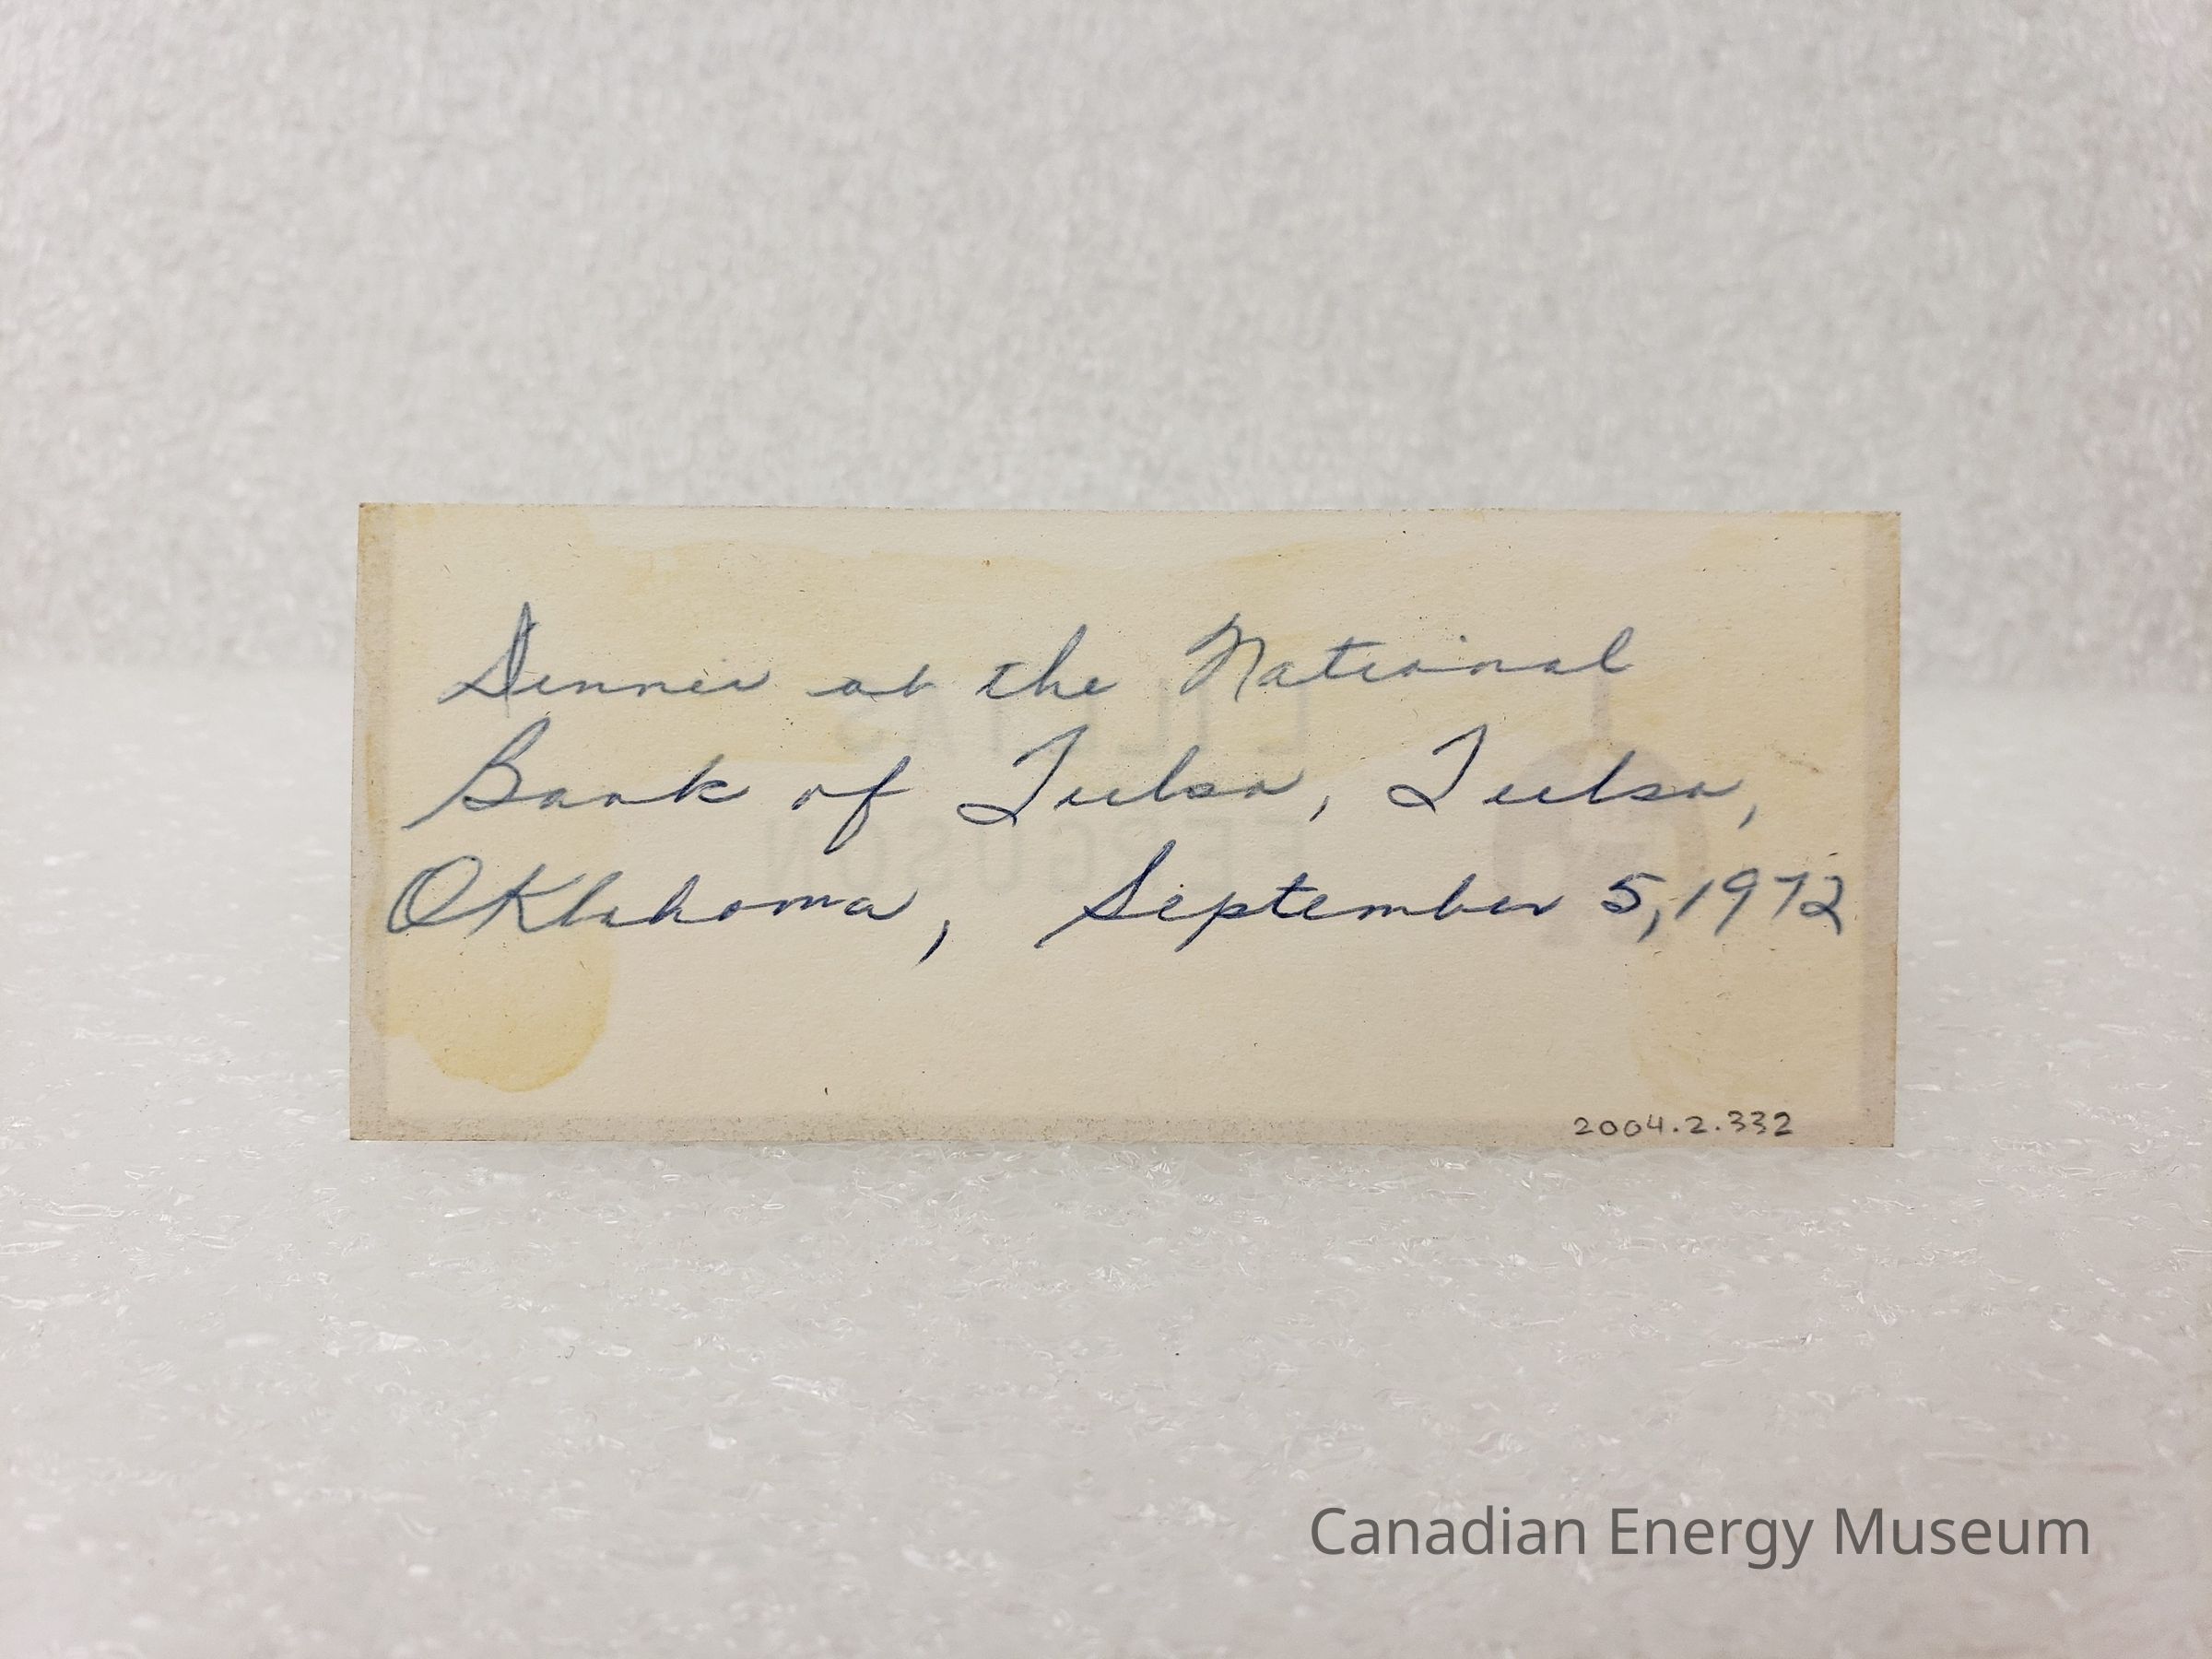 Dinner at the National
Bank of Tulsa, Tulsa,
Oklahoma, September 5, 1972
2004.2.332
Canadian Energy Museum